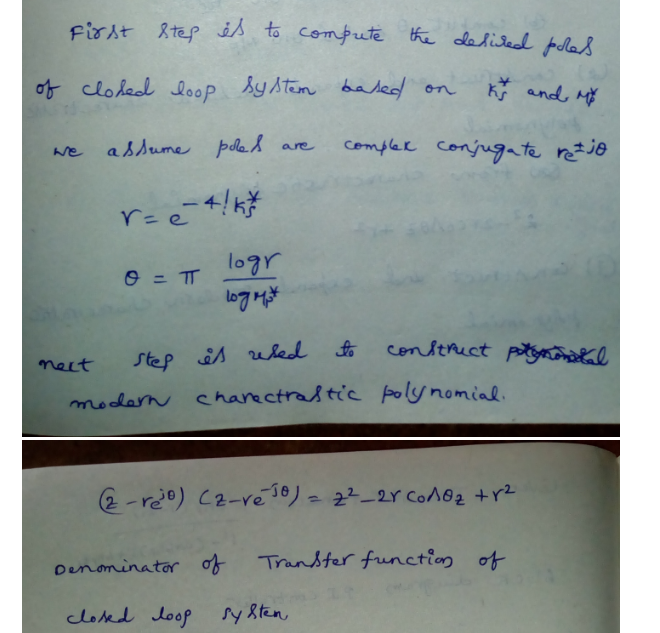 First step is to compute the desired poles
of closed loop system based on Ks* and Mp*
we assume poles are complex conjugate re±jθ
r = e-4/Ks*
θ = π logr/logMp*
next step is used to construct
modern charactrastic polynomial.
(z-rejθ) (z-re-jθ) = z2-2r cosθz +r2
Denominator of Transfer function of
closed loop system